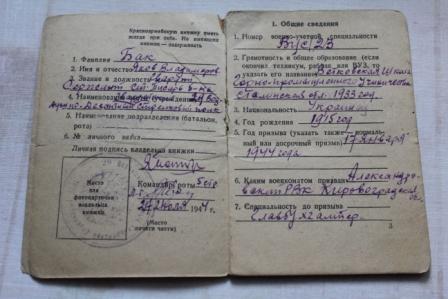 Красноармейскую книжку иметь
всегда при себе. Не имеющих
книжек — задерживать
1. Фамилия Бак
2. Имя и отчество Яков Владимиров
3. Звание и должность
Сержант ст. писарь
4. Наименование
Десантный полк
5. Наименование подразделения (батальон,
рота)
6. № личного знака
Личная подпись владельца книжки
Место
для
фотокарточки
владельца
книжки
Командир роты
1944 г.
(Место
печати части)
1. Общие сведения
1. Номер военно-учетной специальности
ВУС/23
2. Грамотность и общее образование (если
окончил техникум, рабфак или ВУЗ, то
указать его название)
Школа
Горнопромышленного Ученичества
Сталинской обл. 1933 год.
3. Национальность Украинец
4. Год рождения 1915 год
5. Год призыва (указать также нормальный
или досрочный призыв) 17 января
1944 года
6. Каким военкоматом призван Александрий-
РВК Кировоградской
обл.
7. Специальность до призыва
Главбухгалтер.
3